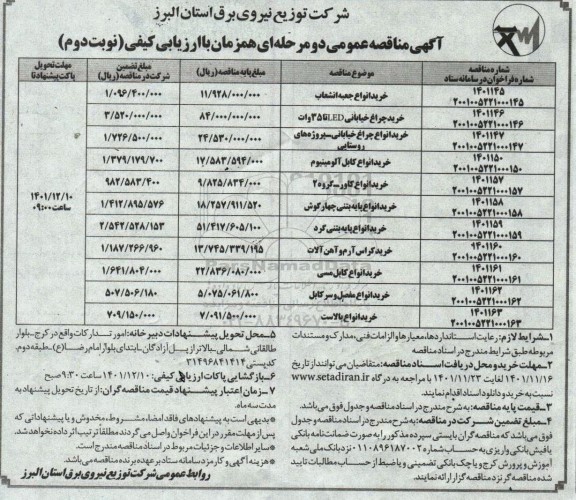 شرکت توزیع نیروی برق استان البرز
آگهی مناقصه عمومی دو مرحله‌ای همزمان با ارزیابی کیفی (نوبت دوم)
شماره مناقصه شماره فراخوان در سامانه ستاد | موضوع مناقصه | مبلغ پایه مناقصه (ریال) | مبلغ تضمین شرکت در مناقصه (ریال) | مهلت تحویل پاکت پیشنهادات
۱۴۰۱۱۴۵ ۲۰۰۱۰۰۵۲۲۱۰۰۰۱۴۵ | خرید انواع جعبه انشعاب | ۱۱/۹۲۸/۰۰۰/۰۰۰ | ۱/۰۹۶/۴۰۰/۰۰۰
۱۴۰۱۱۴۶ ۲۰۰۱۰۰۵۲۲۱۰۰۰۱۴۶ | خرید چراغ خیابانی LED تا ۳۵ وات | ۸۴/۰۰۰/۰۰۰/۰۰۰ | ۳/۵۲۰/۰۰۰/۰۰۰
۱۴۰۱۱۴۷ ۲۰۰۱۰۰۵۲۲۱۰۰۰۱۴۷ | خرید انواع چراغ خیابانی سپروژه‌های روستایی | ۲۴/۵۳۰/۰۰۰/۰۰۰ | ۱/۷۲۶/۵۰۰/۰۰۰
۱۴۰۱۱۵۰ ۲۰۰۱۰۰۵۲۲۱۰۰۰۱۵۰ | خرید انواع کابل آلومینیوم | ۱۷/۵۸۳/۵۹۴/۰۰۰ | ۱/۳۷۹/۱۷۹/۷۰۰
۱۴۰۱۱۵۷ ۲۰۰۱۰۰۵۲۲۱۰۰۰۱۵۷ | خرید انواع کاور-گروه ۲ | ۹/۸۲۵/۸۳۴/۰۰۰ | ۹۸۲/۵۸۳/۴۰۰
۱۴۰۱۱۵۸ ۲۰۰۱۰۰۵۲۲۱۰۰۰۱۵۸ | خرید انواع پایه بتنی چهارگوش | ۱۸/۲۵۷/۹۱۱/۵۲۰ | ۱/۴۱۲/۸۹۵/۵۷۶
۱۴۰۱۱۵۹ ۲۰۰۱۰۰۵۲۲۱۰۰۰۱۵۹ | خرید انواع پایه بتنی گرد | ۵۱/۴۱۷/۶۰۵/۱۰۰ | ۲/۵۴۲/۵۲۸/۱۵۳
۱۴۰۱۱۶۰ ۲۰۰۱۰۰۵۲۲۱۰۰۰۱۶۰ | خرید کراس آرم و آهن آلات | ۱۳/۷۴۵/۳۳۹/۱۹۵ | ۱/۱۸۷/۲۶۶/۹۶۰
۱۴۰۱۱۶۱ ۲۰۰۱۰۰۵۲۲۱۰۰۰۱۶۱ | خرید انواع کابل مسی | ۲۲/۸۳۶/۰۸۰/۰۰۰ | ۱/۶۴۱/۸۰۴/۰۰۰
۱۴۰۱۱۶۲ ۲۰۰۱۰۰۵۲۲۱۰۰۰۱۶۲ | خرید انواع مفصل و سرکابل | ۵/۰۷۵/۰۶۱/۸۰۰ | ۵۰۷/۵۰۶/۱۸۰
۱۴۰۱۱۶۳ ۲۰۰۱۰۰۵۲۲۱۰۰۰۱۶۳ | خرید انواع بالاست | ۷/۰۹۱/۵۰۰/۰۰۰ | ۷۰۹/۱۵۰/۰۰۰
۱۴۰۱/۱۲/۱۰ ساعت ۰۹:۰۰
ParsNamadData
۱ـ شرایط لازم: رعایت استانداردها، معیارها و الزامات فنی، مدارک و مستندات
مربوطه طبق شرایط مندرج در اسناد مناقصه
۲ـ مهلت خرید و محل دریافت اسناد مناقصه: متقاضیان می‌توانند از تاریخ
۱۴۰۱/۱۱/۱۶ لغایت ۱۴۰۱/۱۱/۲۳ با مراجعه به درگاه www.setadiran.ir
نسبت به خرید و دانلود اسناد اقدام نمایند.
۳ـ قیمت پایه مناقصه: به شرح مندرج در اسناد مناقصه و جدول فوق می‌باشد.
۴ـ مبلغ تضمین شرکت در مناقصه: به شرح مندرج در اسناد مناقصه و جدول
فوق می‌باشد که مناقصه گران بایستی سپرده مذکور را به صورت ضمانت نامه بانکی
یا فیش بانکی واریزی به حساب شماره ۰۱۱۰۸۹۶۱۸۷۰۰۲ نزد بانک ملی شعبه
آموزش و پرورش کرج و یا چک بانکی تضمینی و یا ضبط از حساب مطالبات تایید
شده مناقصه گر نزد مناقصه گزار ارائه نمایند.
۵ـ محل تحویل پیشنهادات دبیرخانه: امور تدارکات واقع در کرج ـ بلوار
طالقانی شمالی ـ بالاتر از پل آزادگان ـ ابتدای بلوار امام رضا(ع) ـ طبقه دوم.
کدپستی ۳۱۴۹۶۸۴۱۴۱۴
۶ـ بازگشایی پاکات ارزیابی کیفی: ۱۴۰۱/۱۲/۱۰ ساعت ۹:۳۰ صبح
۷ـ زمان اعتبار پیشنهاد قیمت مناقصه گران: از تاریخ تحویل پیشنهاد به
مدت سه ماه.
* بدیهی است به پیشنهادهای فاقد امضاء، مشروط، مخدوش و یا پیشنهاداتی که
پس از مهلت مقرر در این فراخوان واصل می‌گردند مطلقاً ترتیب اثر داده نخواهد شد.
* سایر اطلاعات و جزئیات مربوط در اسناد مناقصه مندرج است.
* هزینه آگهی و کارمزد سامانه ستاد بر عهده برنده مناقصه می‌باشد.
روابط عمومی شرکت توزیع نیروی برق استان البرز